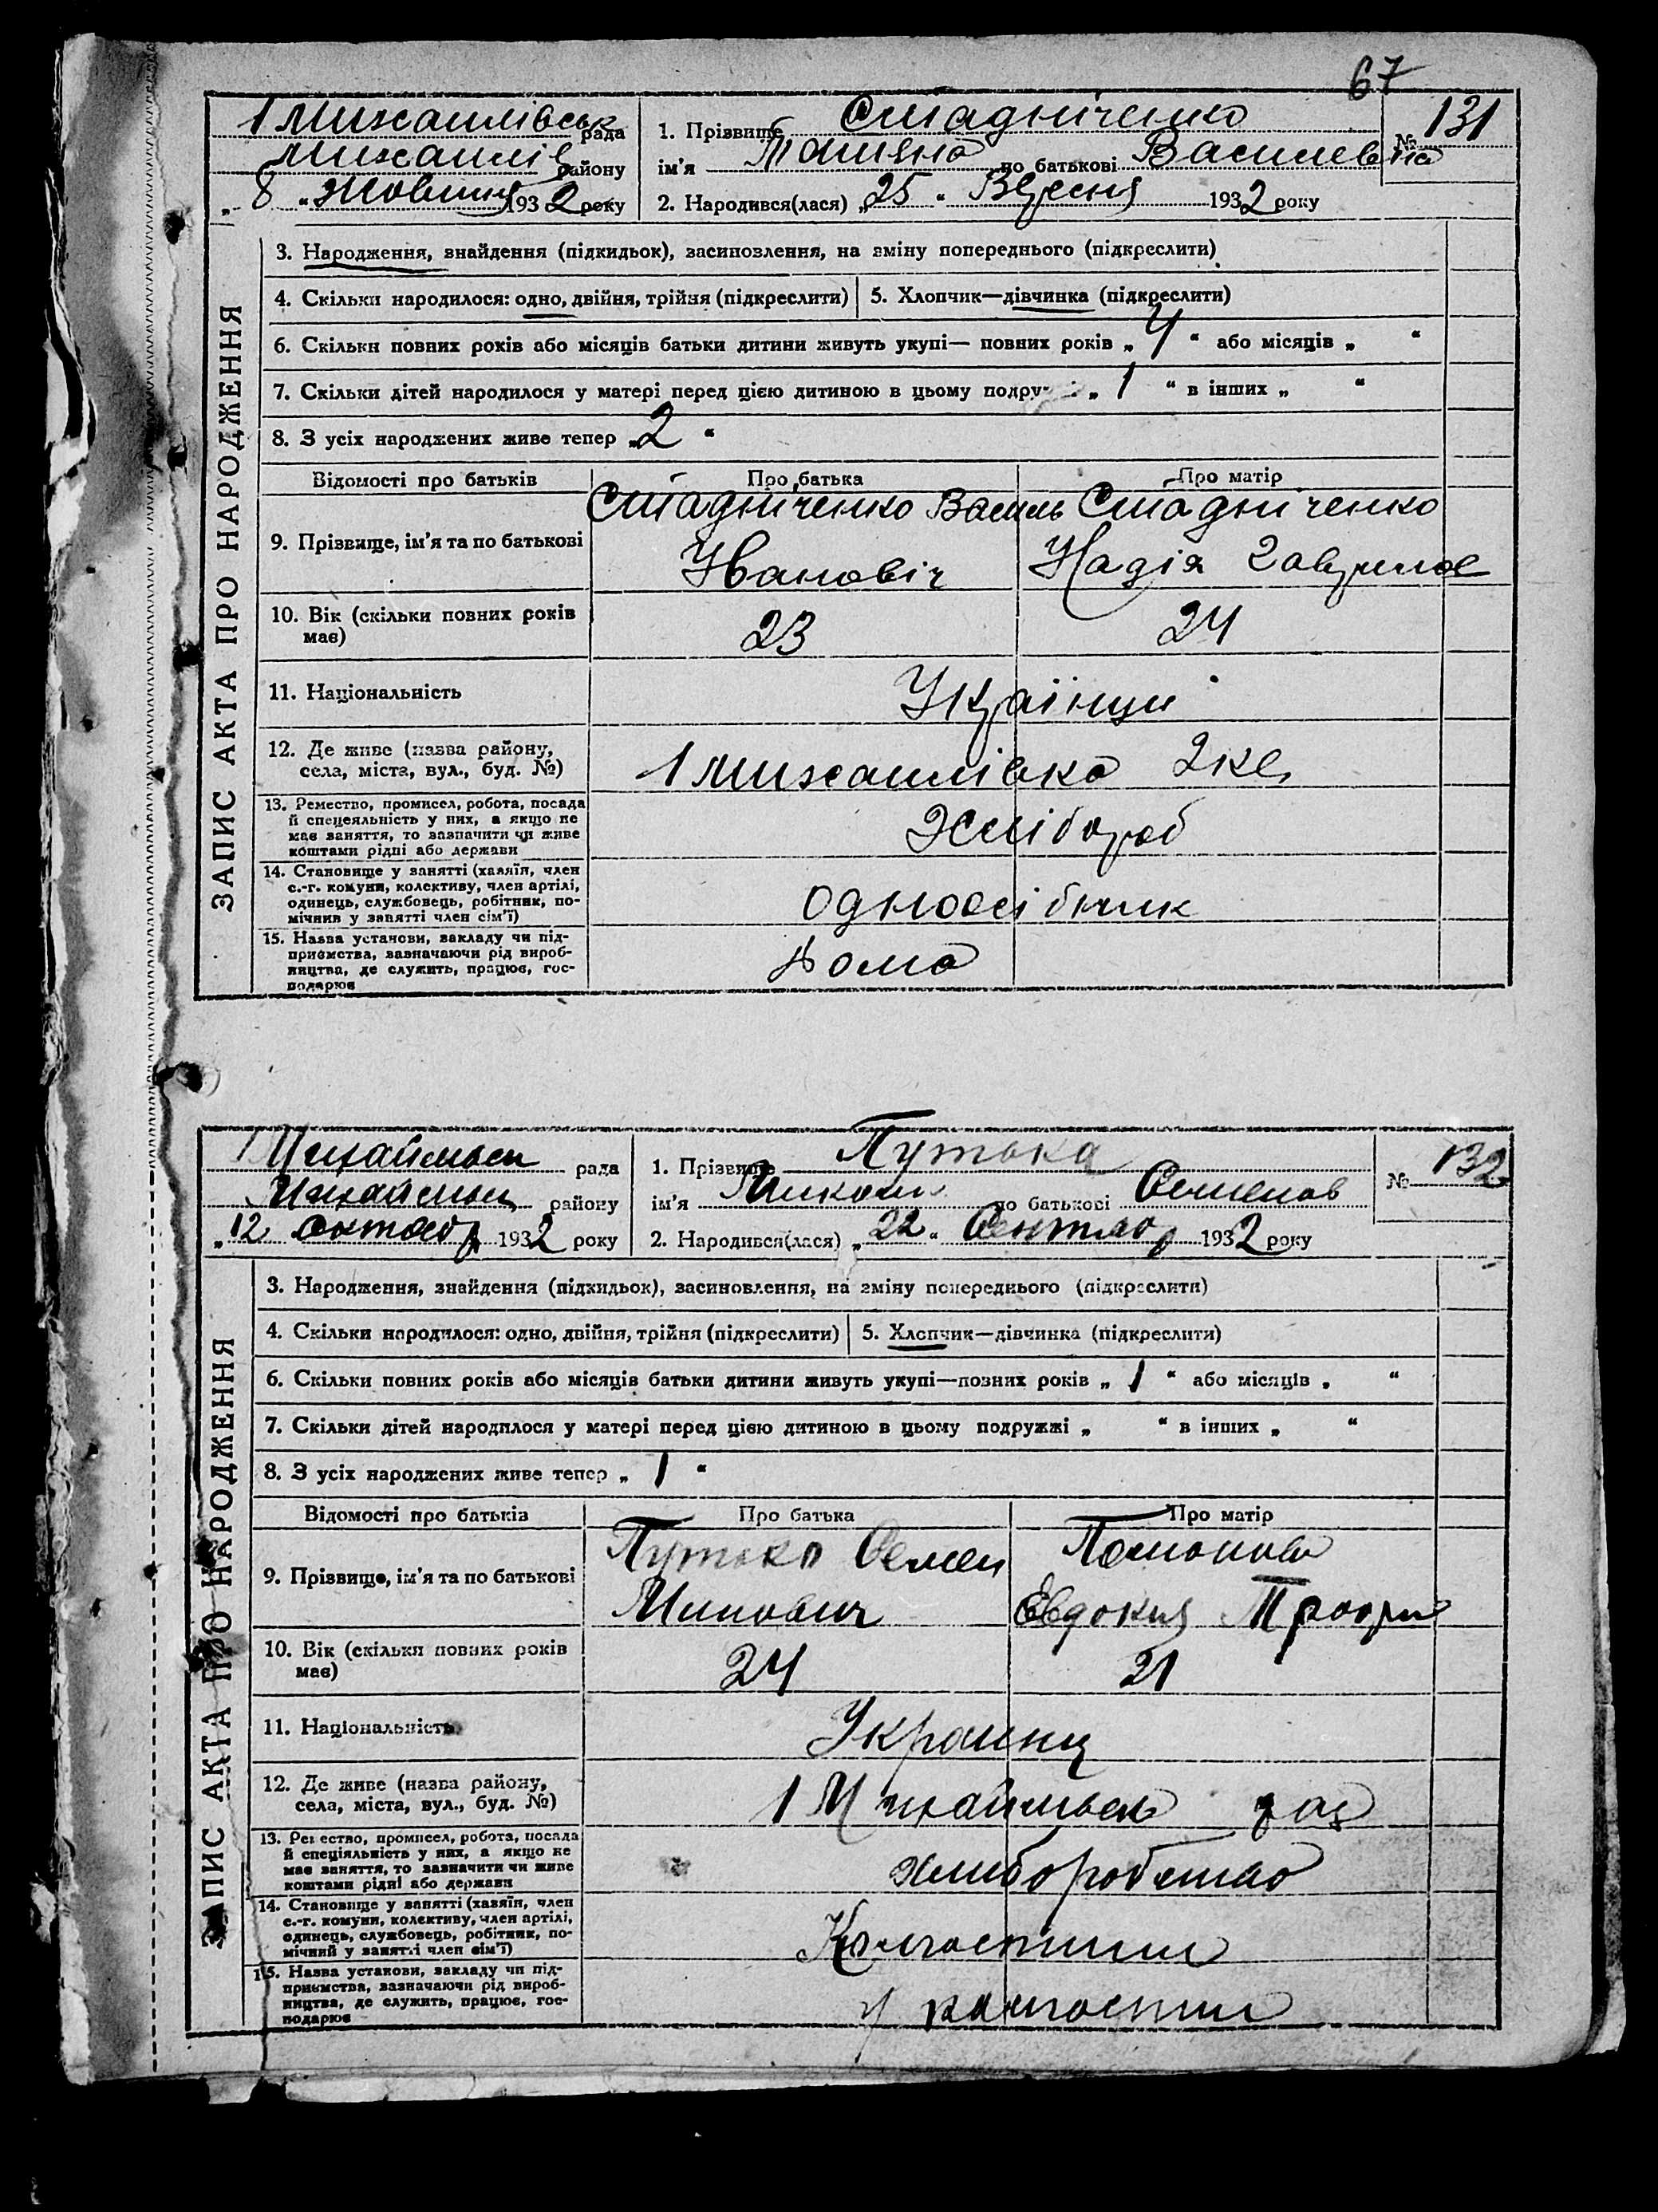 67
1 Михайлівськ рада
Михайлів району
„ 8 „ Жовтня 1932 року
1. Прізвище Стадніченко
№ 131
ім'я Татьяна по батькові Василевна
2. Народився(лася) „ 25 „ Вересня 1932 року
ЗАПИС АКТА ПРО НАРОДЖЕННЯ
3. Народження, знайдення (підкидьок), засиновлення, на зміну попереднього (підкреслити)
4. Скільки народилося: одно, двійня, трійня (підкреслити)
5. Хлопчик—дівчинка (підкреслити)
6. Скільки повних років або місяців батьки дитини живуть укупі— повних років „ 4 “ або місяців „ “
7. Скільки дітей народилося у матері перед цією дитиною в цьому подру „ 1 “ в інших „ “
8. З усіх народжених живе тепер „ 2 “
Відомості про батьків
Про батька
Про матір
9. Прізвище, ім'я та по батькові
Стадніченко Василь
Ивановіч
Стадніченко
Надія Гаврилов
10. Вік (скільки повних років
має)
23
24
11. Національність
Українці
12. Де живе (назва району,
села, міста, вул., буд. №)
1 Михайлівка
13. Ремество, промисел, робота, посада
й спецеяльність у них, а якщо не
має заняття, то зазначити чи живе
коштами рідні або держави
Хлібороб
14. Становище у занятті (хазяїн, член
с.-г. комуни, колективу, член артілі,
одинець, службовець, робітник, по-
мічник у занятті член сім'ї)
одноосібник
15. Назва установи, закладу чи під-
приємства, зазначаючи рід вироб-
ництва, де служить, працює, гос-
подарює
Дома
1 Михайловск рада
Михайловск району
„ 12 октябр 1932 року
1. Прізвище Путька
№ 132
ім'я Никола по батькові Семенов
2. Народився(лася) „ 22 „ Сентябр 1932 року
ЗАПИС АКТА ПРО НАРОДЖЕННЯ
3. Народження, знайдення (підкидьок), засиновлення, на зміну попереднього (підкреслити)
4. Скільки народилося: одно, двійня, трійня (підкреслити)
5. Хлопчик—дівчинка (підкреслити)
6. Скільки повних років або місяців батьки дитини живуть укупі—повних років „ 1 “ або місяців „ “
7. Скільки дітей народилося у матері перед цією дитиною в цьому подружжі „ “ в інших „ “
8. З усіх народжених живе тепер „ 1 “
Відомості про батьків
Про батька
Про матір
9. Прізвище, ім'я та по батькові
Путько Семен
Минович
Евдокия
10. Вік (скільки повних років
має)
24
21
11. Національність
Украинц
12. Де живе (назва району,
села, міста, вул., буд. №)
1 Михайловск
13. Ремество, промисел, робота, посада
й спеціяльність у них, а якщо не
має заняття, то зазначити чи живе
коштами рідні або держави
хлиборобство
14. Становище у занятті (хазяїн, член
с.-г. комуни, колективу, член артілі,
одинець, службовець, робітник, по-
мічний у занятті член сім'ї)
15. Назва установи, закладу чи під-
приємства, зазначаючи рід вироб-
ництва, де служить, працює, гос-
подарює